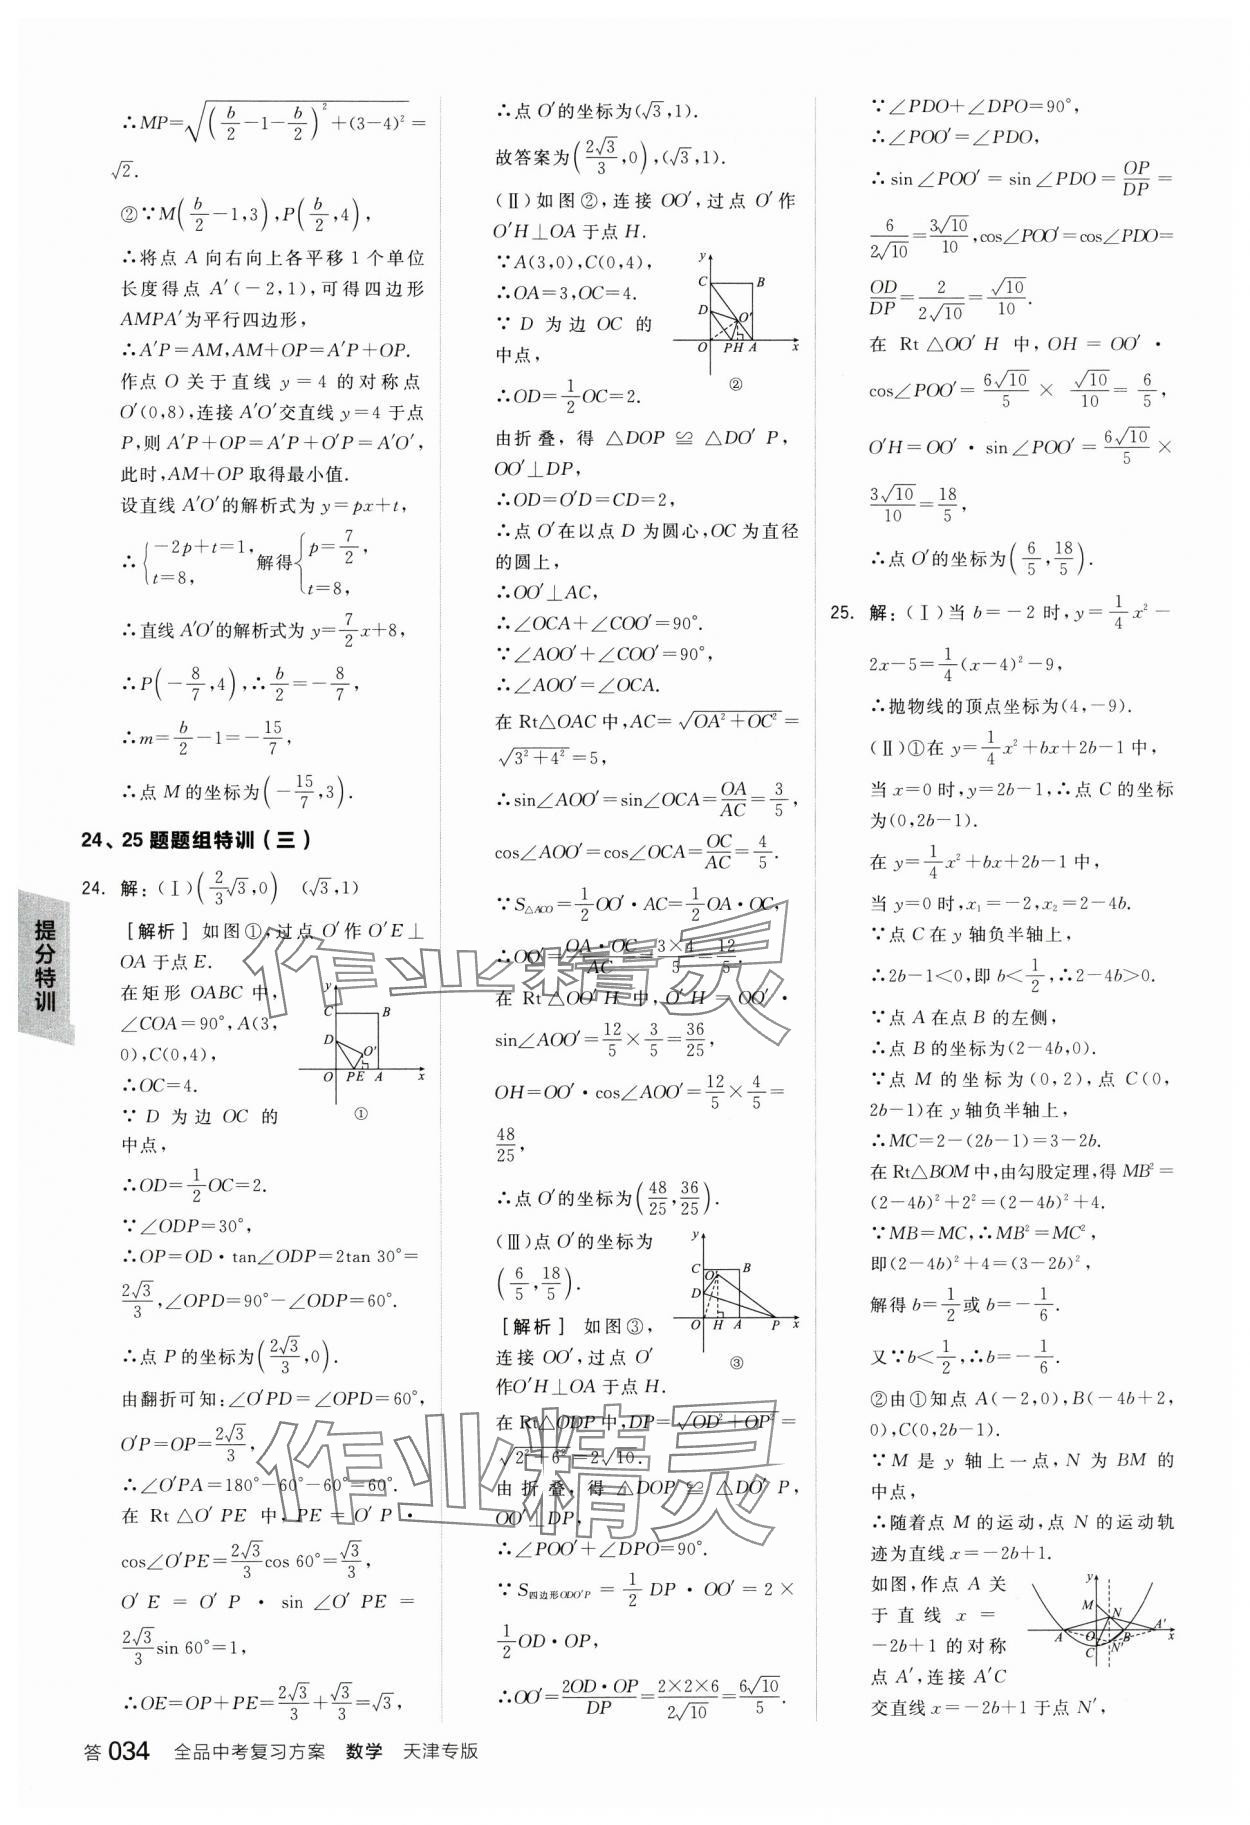 ∴MP=√((b/2-1-b/2)²+(3-4)²)=
√2.
②∵M(b/2-1,3),P(b/2,4),
∴将点 A 向右向上各平移 1 个单位
长度得点 A′(-2,1),可得四边形
AMPA′为平行四边形,
∴A′P=AM,AM+OP=A′P+OP.
作点 O 关于直线 y=4 的对称点
O′(0,8),连接 A′O′交直线 y=4 于点
P,则 A′P+OP=A′P+O′P=A′O′,
此时,AM+OP 取得最小值.
设直线 A′O′的解析式为 y=px+t,
∴{-2p+t=1, t=8, 解得{p=7/2, t=8,
∴直线 A′O′的解析式为 y=7/2x+8,
∴P(-8/7,4),∴b/2=-8/7,
∴m=b/2-1=-15/7,
∴点 M 的坐标为(-15/7,3).
24、25 题题组特训(三)
24. 解:(Ⅰ)(2/3√3,0) (√3,1)
[解析] 如图①,过点 O′作 O′E⊥
OA 于点 E.
在矩形 OABC 中,
∠COA=90°,A(3,
0),C(0,4),
∴OC=4.
∵ D 为边 OC 的
中点,
y
C B
D O′
O P E A x
①
∴OD=1/2OC=2.
∵∠ODP=30°,
∴OP=OD·tan∠ODP=2tan 30°=
2√3/3,∠OPD=90°-∠ODP=60°.
∴点 P 的坐标为(2√3/3,0).
由翻折可知:∠O′PD=∠OPD=60°,
O′P=OP=2√3/3,
∴∠O′PA=180°-60°-60°=60°.
在 Rt △O′PE 中,PE = O′P·
cos∠O′PE=2√3/3cos 60°=√3/3,
O′E = O′P · sin ∠O′PE =
2√3/3sin 60°=1,
∴OE=OP+PE=2√3/3+√3/3=√3,
∴点 O′的坐标为(√3,1).
故答案为(2√3/3,0),(√3,1).
(Ⅱ)如图②,连接 OO′,过点 O′作
O′H⊥OA 于点 H.
∵A(3,0),C(0,4),
∴OA=3,OC=4.
∵ D 为边 OC 的
中点,
y
C B
D O′
O P H A x
②
∴OD=1/2OC=2.
由折叠,得 △DOP ≌ △DO′P,
OO′⊥DP,
∴OD=O′D=CD=2,
∴点 O′在以点 D 为圆心,OC 为直径
的圆上,
∴OO′⊥AC,
∴∠OCA+∠COO′=90°.
∵∠AOO′+∠COO′=90°,
∴∠AOO′=∠OCA.
在 Rt△OAC 中,AC=√(OA²+OC²)=
√(3²+4²)=5,
∴sin∠AOO′=sin∠OCA=OA/AC=3/5,
cos∠AOO′=cos∠OCA=OC/AC=4/5.
∵S△ACO=1/2OO′·AC=1/2OA·OC,
∴OO′=OA·OC/AC=3×4/5=12/5.
在 Rt△OO′H 中,O′H=OO′·
sin∠AOO′=12/5×3/5=36/25,
OH=OO′·cos∠AOO′=12/5×4/5=
48/25,
∴点 O′的坐标为(48/25,36/25).
(Ⅲ)点 O′的坐标为
(6/5,18/5).
[解析] 如图③,
连接 OO′,过点 O′
作O′H⊥OA 于点 H.
y
C O′ B
D
O H A P x
③
在 Rt△ODP 中,DP=√(OD²+OP²)=
√(2²+6²)=2√10.
由折叠,得 △DOP ≌ △DO′P,
OO′⊥DP,
∴∠POO′+∠DPO=90°.
∵S四边形ODO′P = 1/2 DP·OO′ = 2×
1/2OD·OP,
∴OO′=2OD·OP/DP=2×2×6/2√10=6√10/5.
∵∠PDO+∠DPO=90°,
∴∠POO′=∠PDO,
∴sin∠POO′=sin∠PDO=OP/DP=
6/2√10=3√10/10,cos∠POO′=cos∠PDO=
OD/DP=2/2√10=√10/10.
在 Rt △OO′H 中,OH = OO′·
cos∠POO′=6√10/5×√10/10=6/5,
O′H=OO′·sin∠POO′=6√10/5×
3√10/10=18/5,
∴点 O′的坐标为(6/5,18/5).
25. 解:(Ⅰ)当 b=-2 时,y=1/4x²-
2x-5=1/4(x-4)²-9,
∴抛物线的顶点坐标为(4,-9).
(Ⅱ)①在 y=1/4x²+bx+2b-1 中,
当 x=0 时,y=2b-1,∴点 C 的坐标
为(0,2b-1).
在 y=1/4x²+bx+2b-1 中,
当 y=0 时,x₁=-2,x₂=2-4b.
∵点 C 在 y 轴负半轴上,
∴2b-1<0,即 b<1/2,∴2-4b>0.
∵点 A 在点 B 的左侧,
∴点 B 的坐标为(2-4b,0).
∵点 M 的坐标为(0,2),点 C(0,
2b-1)在 y 轴负半轴上,
∴MC=2-(2b-1)=3-2b.
在 Rt△BOM 中,由勾股定理,得 MB²=
(2-4b)²+2²=(2-4b)²+4.
∵MB=MC,∴MB²=MC²,
即(2-4b)²+4=(3-2b)²,
解得 b=1/2或 b=-1/6.
又∵b<1/2,∴b=-1/6.
②由①知点 A(-2,0),B(-4b+2,
0),C(0,2b-1).
∵M 是 y 轴上一点,N 为 BM 的
中点,
∴随着点 M 的运动,点 N 的运动轨
迹为直线 x=-2b+1.
如图,作点 A 关
于直线 x=
-2b+1 的对称
点 A′,连接 A′C
交直线 x=-2b+1 于点 N′,
y
M N
A O B A′ x
C N′
提分特训
作业精灵
作业精灵
答 034 全品中考复习方案 数学 天津专版